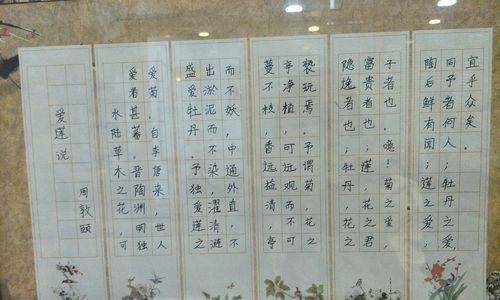 爱莲说
周敦颐
水陆草木之花，可
爱者甚蕃。晋陶渊明独
爱菊。自李唐来，世人
盛爱牡丹。予独爱莲之
出淤泥而不染，濯清涟
而不妖，中通外直，不
蔓不枝，香远益清，亭
亭净植，可远观而不可
亵玩焉。予谓菊，花之
隐逸者也；牡丹，花之
富贵者也；莲，花之君
子者也。噫！菊之爱，
陶后鲜有闻；莲之爱，
同予者何人；牡丹之爱，
宜乎众矣。